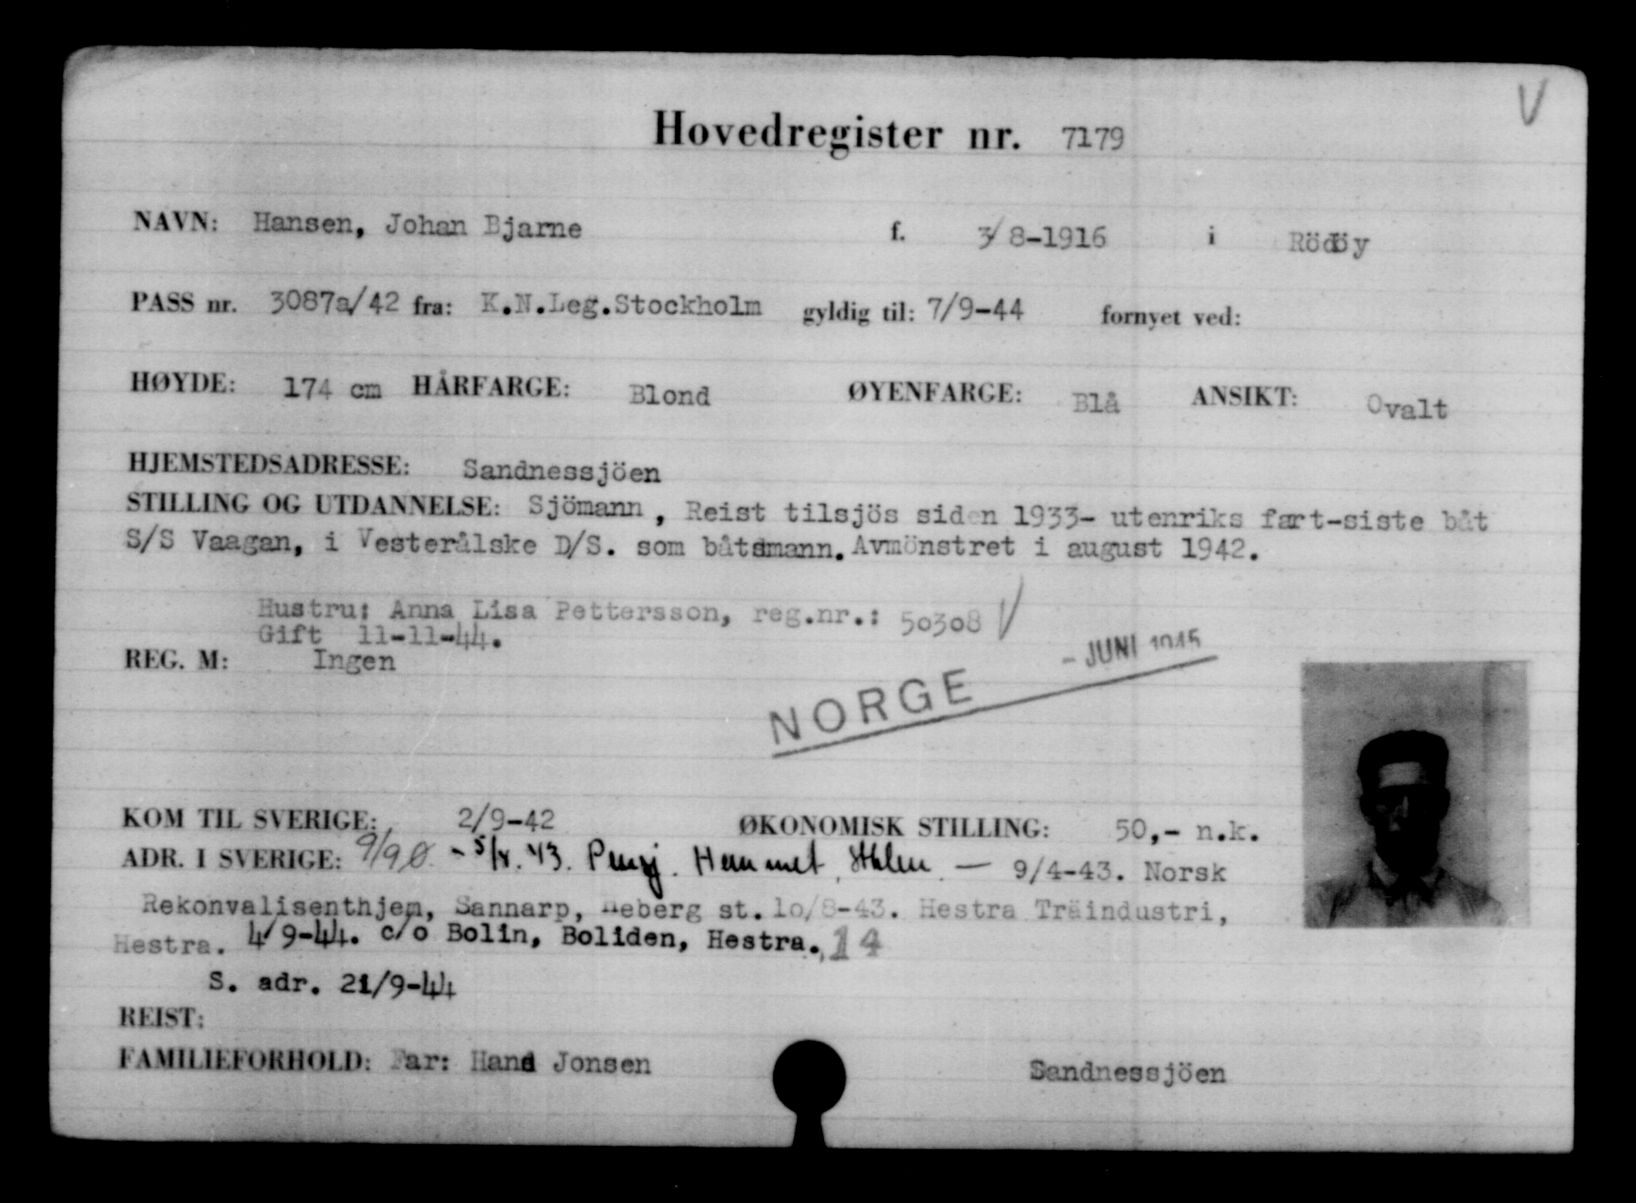 V
Hovedregister nr. 7179
NAVN: Hansen, Johan Bjarne f. 3/8-1916 i Rödöy
PASS nr. 3087a/42 fra: K.N.Leg.Stockholm gyldig til: 7/9-44 fornyet ved:
HØYDE: 174 cm HÅRFARGE: Blond ØYENFARGE: Blå ANSIKT: Ovalt
HJEMSTEDSADRESSE: Sandnessjöen
STILLING OG UTDANNELSE: Sjömann, Reist tilsjös siden 1933- utenriks fart-siste båt
S/S Vaagan, i Vesterålske D/S. som båtsmann. Avmönstret i august 1942.
Hustru: Anna Lisa Pettersson, reg.nr.: 50308 V
Gift 11-11-44.
REG. M: Ingen
NORGE - JUNI 1945
KOM TIL SVERIGE: 2/9-42 ØKONOMISK STILLING: 50,- n.k.
ADR. I SVERIGE: - 43. Hemmet, — 9/4-43. Norsk
Rekonvalisenthjem, Sannarp, Heberg st. 10/8-43. Hestra Träindustri,
Hestra. 4/9-44. c/o Bolin, Boliden, Hestra. 14
S. adr. 21/9-44
REIST:
FAMILIEFORHOLD: Far: Hans Jonsen Sandnessjöen